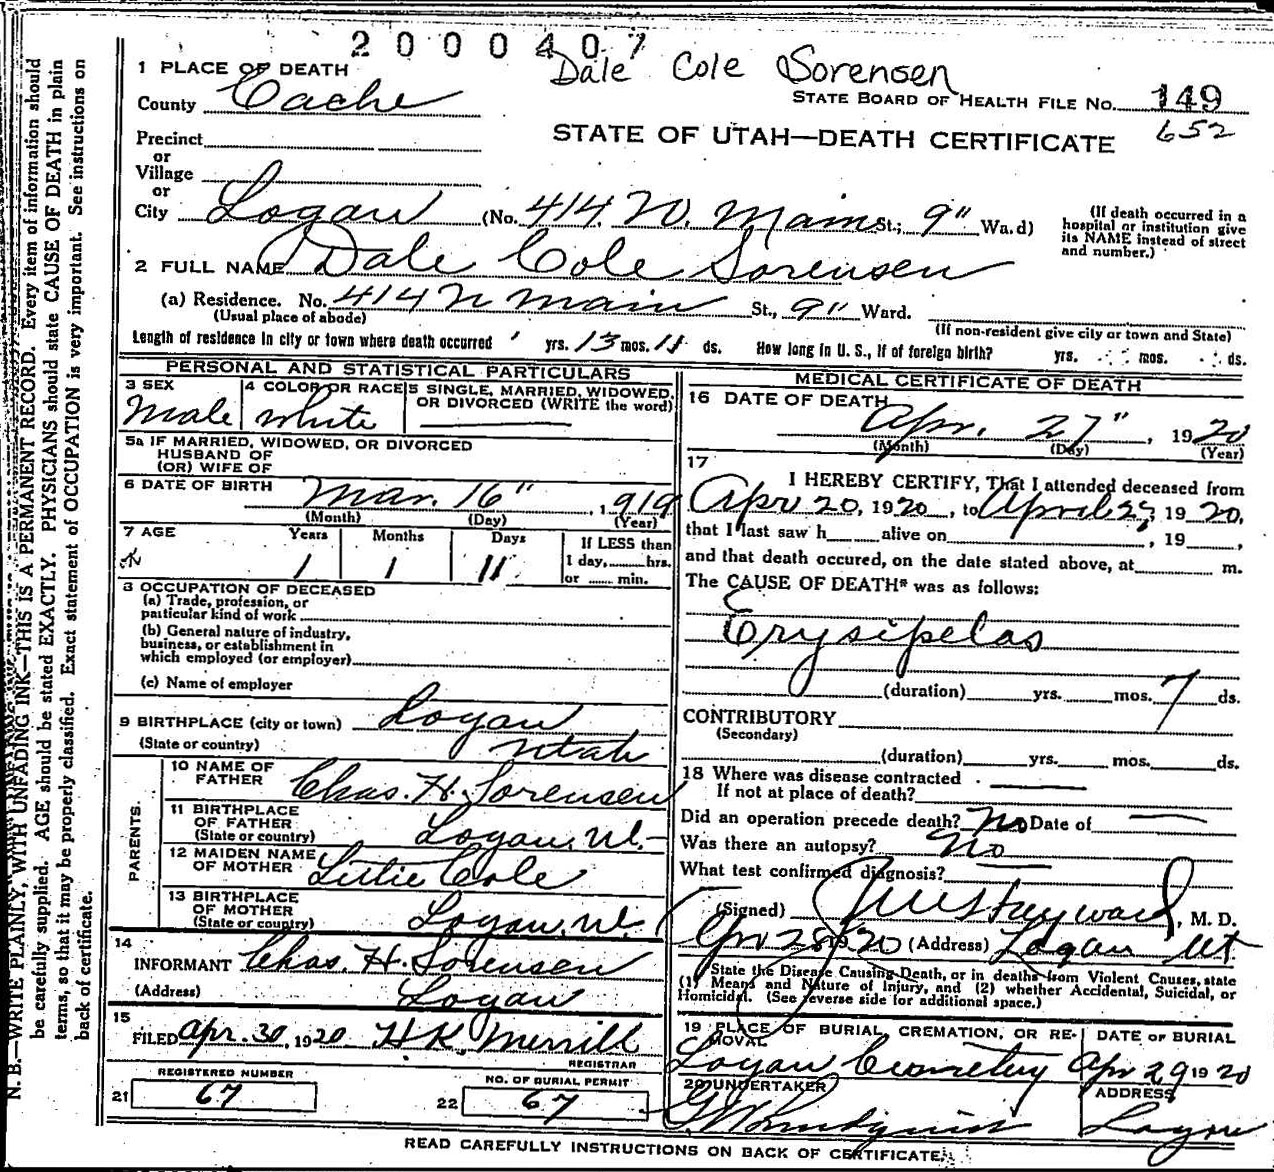 2000407
Dale Cole Sorensen
1 PLACE OF DEATH
STATE BOARD OF HEALTH FILE NO. 149
County Cache
652
STATE OF UTAH—DEATH CERTIFICATE
Precinct
or
Village
or
City Logan (No. 414 N. Main St.; 9" Ward)
(If death occurred in a
hospital or institution give
its NAME instead of street
and number.)
2 FULL NAME Dale Cole Sorensen
(a) Residence. No. 414 N Main St., 9" Ward.
(Usual place of abode)
(If non-resident give city or town and State)
Length of residence in city or town where death occurred yrs. 13 mos. 11 ds. How long in U. S., if of foreign birth? yrs. mos. ds.
PERSONAL AND STATISTICAL PARTICULARS
3 SEX
Male
4 COLOR OR RACE
White
5 SINGLE, MARRIED, WIDOWED,
OR DIVORCED (WRITE the word)
5a IF MARRIED, WIDOWED, OR DIVORCED
HUSBAND OF
(OR) WIFE OF
6 DATE OF BIRTH Mar. 16", 1919
(Month) (Day) (Year)
7 AGE Years Months Days If LESS than
1 1 11 1 day, hrs.
or min.
8 OCCUPATION OF DECEASED
(a) Trade, profession, or
particular kind of work
(b) General nature of industry,
business, or establishment in
which employed (or employer)
(c) Name of employer
9 BIRTHPLACE (city or town) Logan
(State or country) Utah
PARENTS.
10 NAME OF
FATHER Chas. H. Sorensen
11 BIRTHPLACE
OF FATHER
(State or country) Logan, Ut.
12 MAIDEN NAME
OF MOTHER Cole
13 BIRTHPLACE
OF MOTHER
(State or country) Logan, Ut.
14
INFORMANT Chas. H. Sorensen
(Address) Logan
15
FILED Apr. 30, 1920 H.K. Merrill
REGISTRAR
REGISTERED NUMBER
21 67
NO. OF BURIAL PERMIT
22 67
MEDICAL CERTIFICATE OF DEATH
16 DATE OF DEATH
Apr. 27", 1920
(Month) (Day) (Year)
17
I HEREBY CERTIFY, That I attended deceased from
Apr 20, 1920, to April 27, 1920,
that I last saw h alive on , 19 ,
and that death occured, on the date stated above, at m.
The CAUSE OF DEATH* was as follows:
Erysipelas
(duration) yrs. mos. 7 ds.
CONTRIBUTORY
(Secondary)
(duration) yrs. mos. ds.
18 Where was disease contracted
If not at place of death?
Did an operation precede death? No Date of
Was there an autopsy? No
What test confirmed diagnosis?
(Signed) Hayward, M. D.
Apr 28 1920 (Address) Logan Ut
State the Disease Causing Death, or in deaths from Violent Causes, state
(1) Means and Nature of Injury, and (2) whether Accidental, Suicidal, or
Homicidal. (See reverse side for additional space.)
19 PLACE OF BURIAL, CREMATION, OR RE-
MOVAL
Logan Cemetery
DATE OF BURIAL
Apr 29 1920
20 UNDERTAKER
Lindquist
ADDRESS
Logan
READ CAREFULLY INSTRUCTIONS ON BACK OF CERTIFICATE.
N. B.—WRITE PLAINLY, WITH UNFADING INK—THIS IS A PERMANENT RECORD. Every item of information should
be carefully supplied. AGE should be stated EXACTLY. PHYSICIANS should state CAUSE OF DEATH in plain
terms, so that it may be properly classified. Exact statement of OCCUPATION is very important. See instructions on
back of certificate.